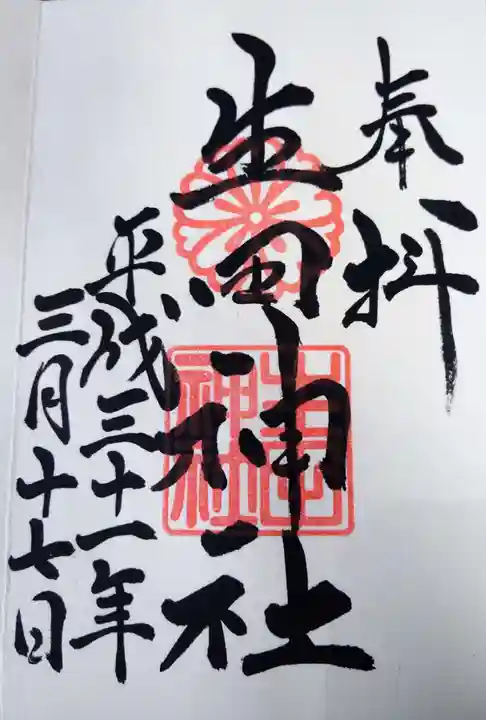 奉拝
生田神社
平成三十一年
三月十七日
生田
神社